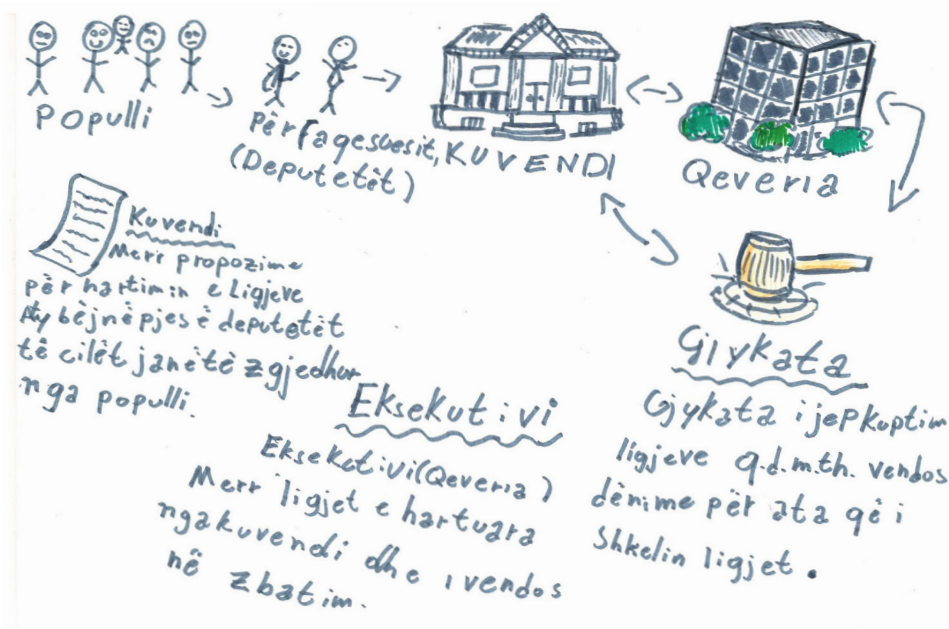 Populli
Përfaqesuesit,
(Deputetët)
KUVENDI
Qeveria
Kuvendi
Merr propozime
për hartimin e Ligjeve
Aty bëjnë pjesë deputetët
të cilët janë të zgjedhur
nga populli.
Eksekutivi
Eksekutivi (Qeveria)
Merr ligjet e hartuara
nga kuvendi dhe i vendos
në zbatim.
Gjykata
Gjykata i jep kuptim
ligjeve q.d.m.th. vendos
dënime për ata që i
shkelin ligjet.